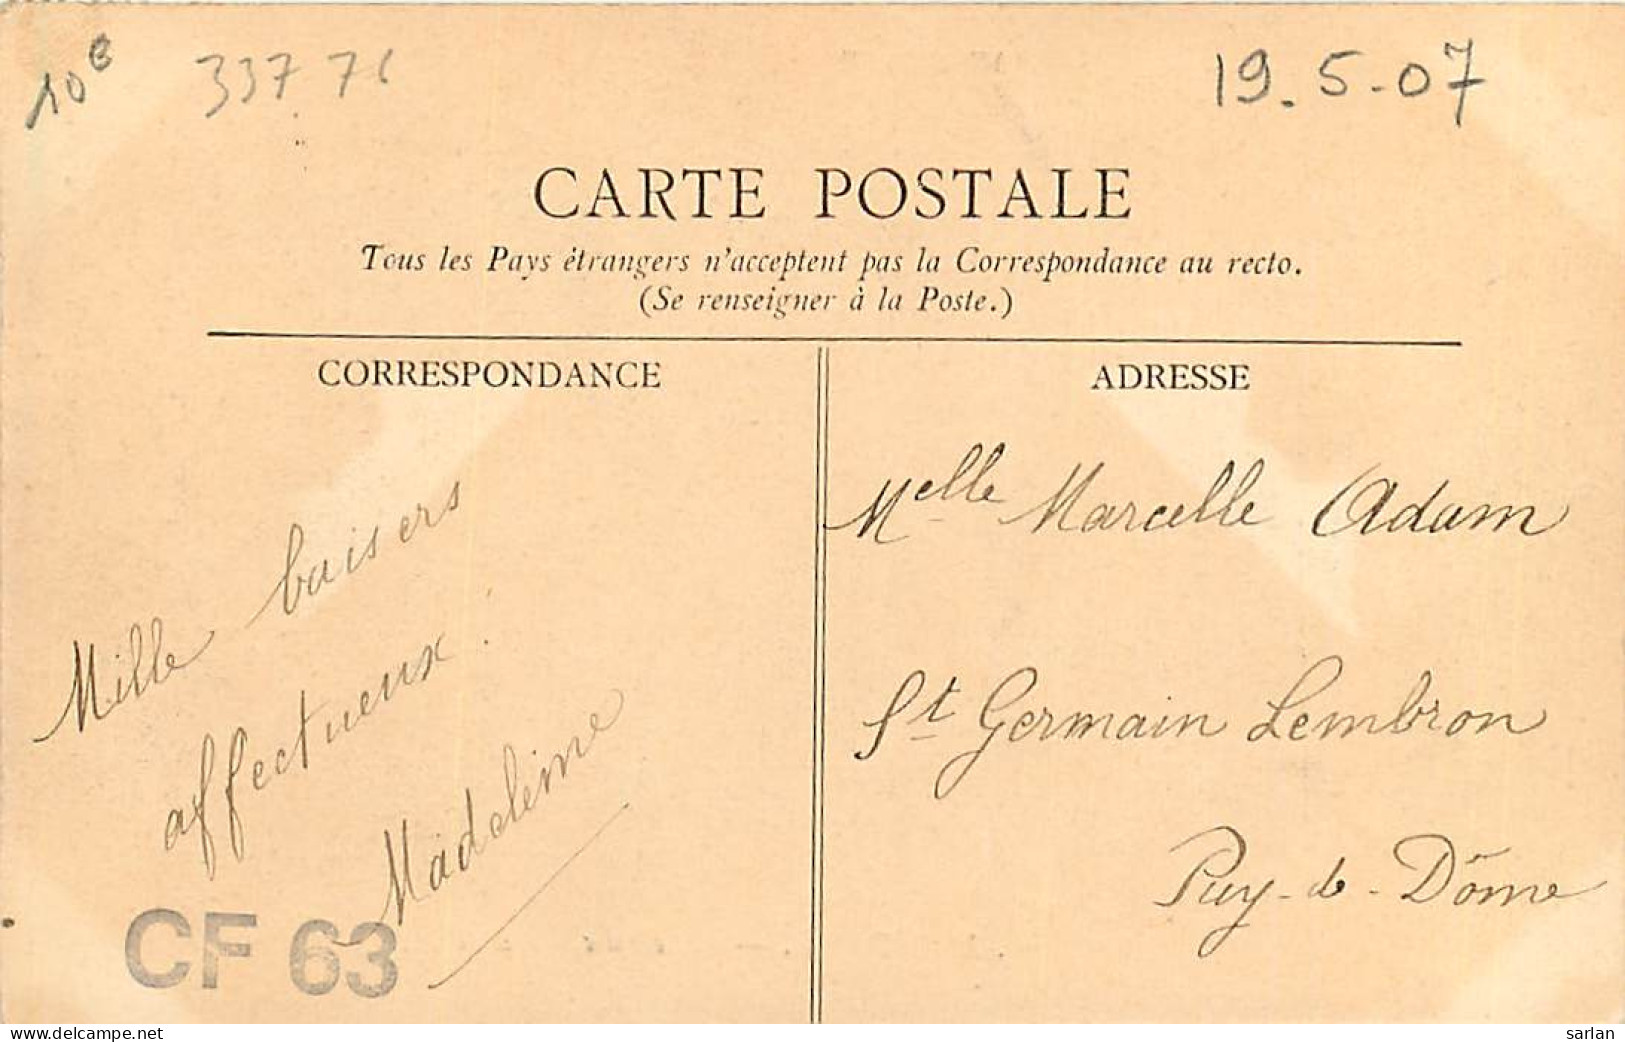 10€
337 71
19.5-07
CARTE POSTALE
Tous les Pays étrangers n'acceptent pas la Correspondance au recto.
(Se renseigner à la Poste.)
CORRESPONDANCE
Mille baisers
affectueux.
Madeleine
CF 63
ADRESSE
Melle Marcelle Adam
St Germain Lembron
Puy-de-Dôme
www.delcampe.net
sarlan